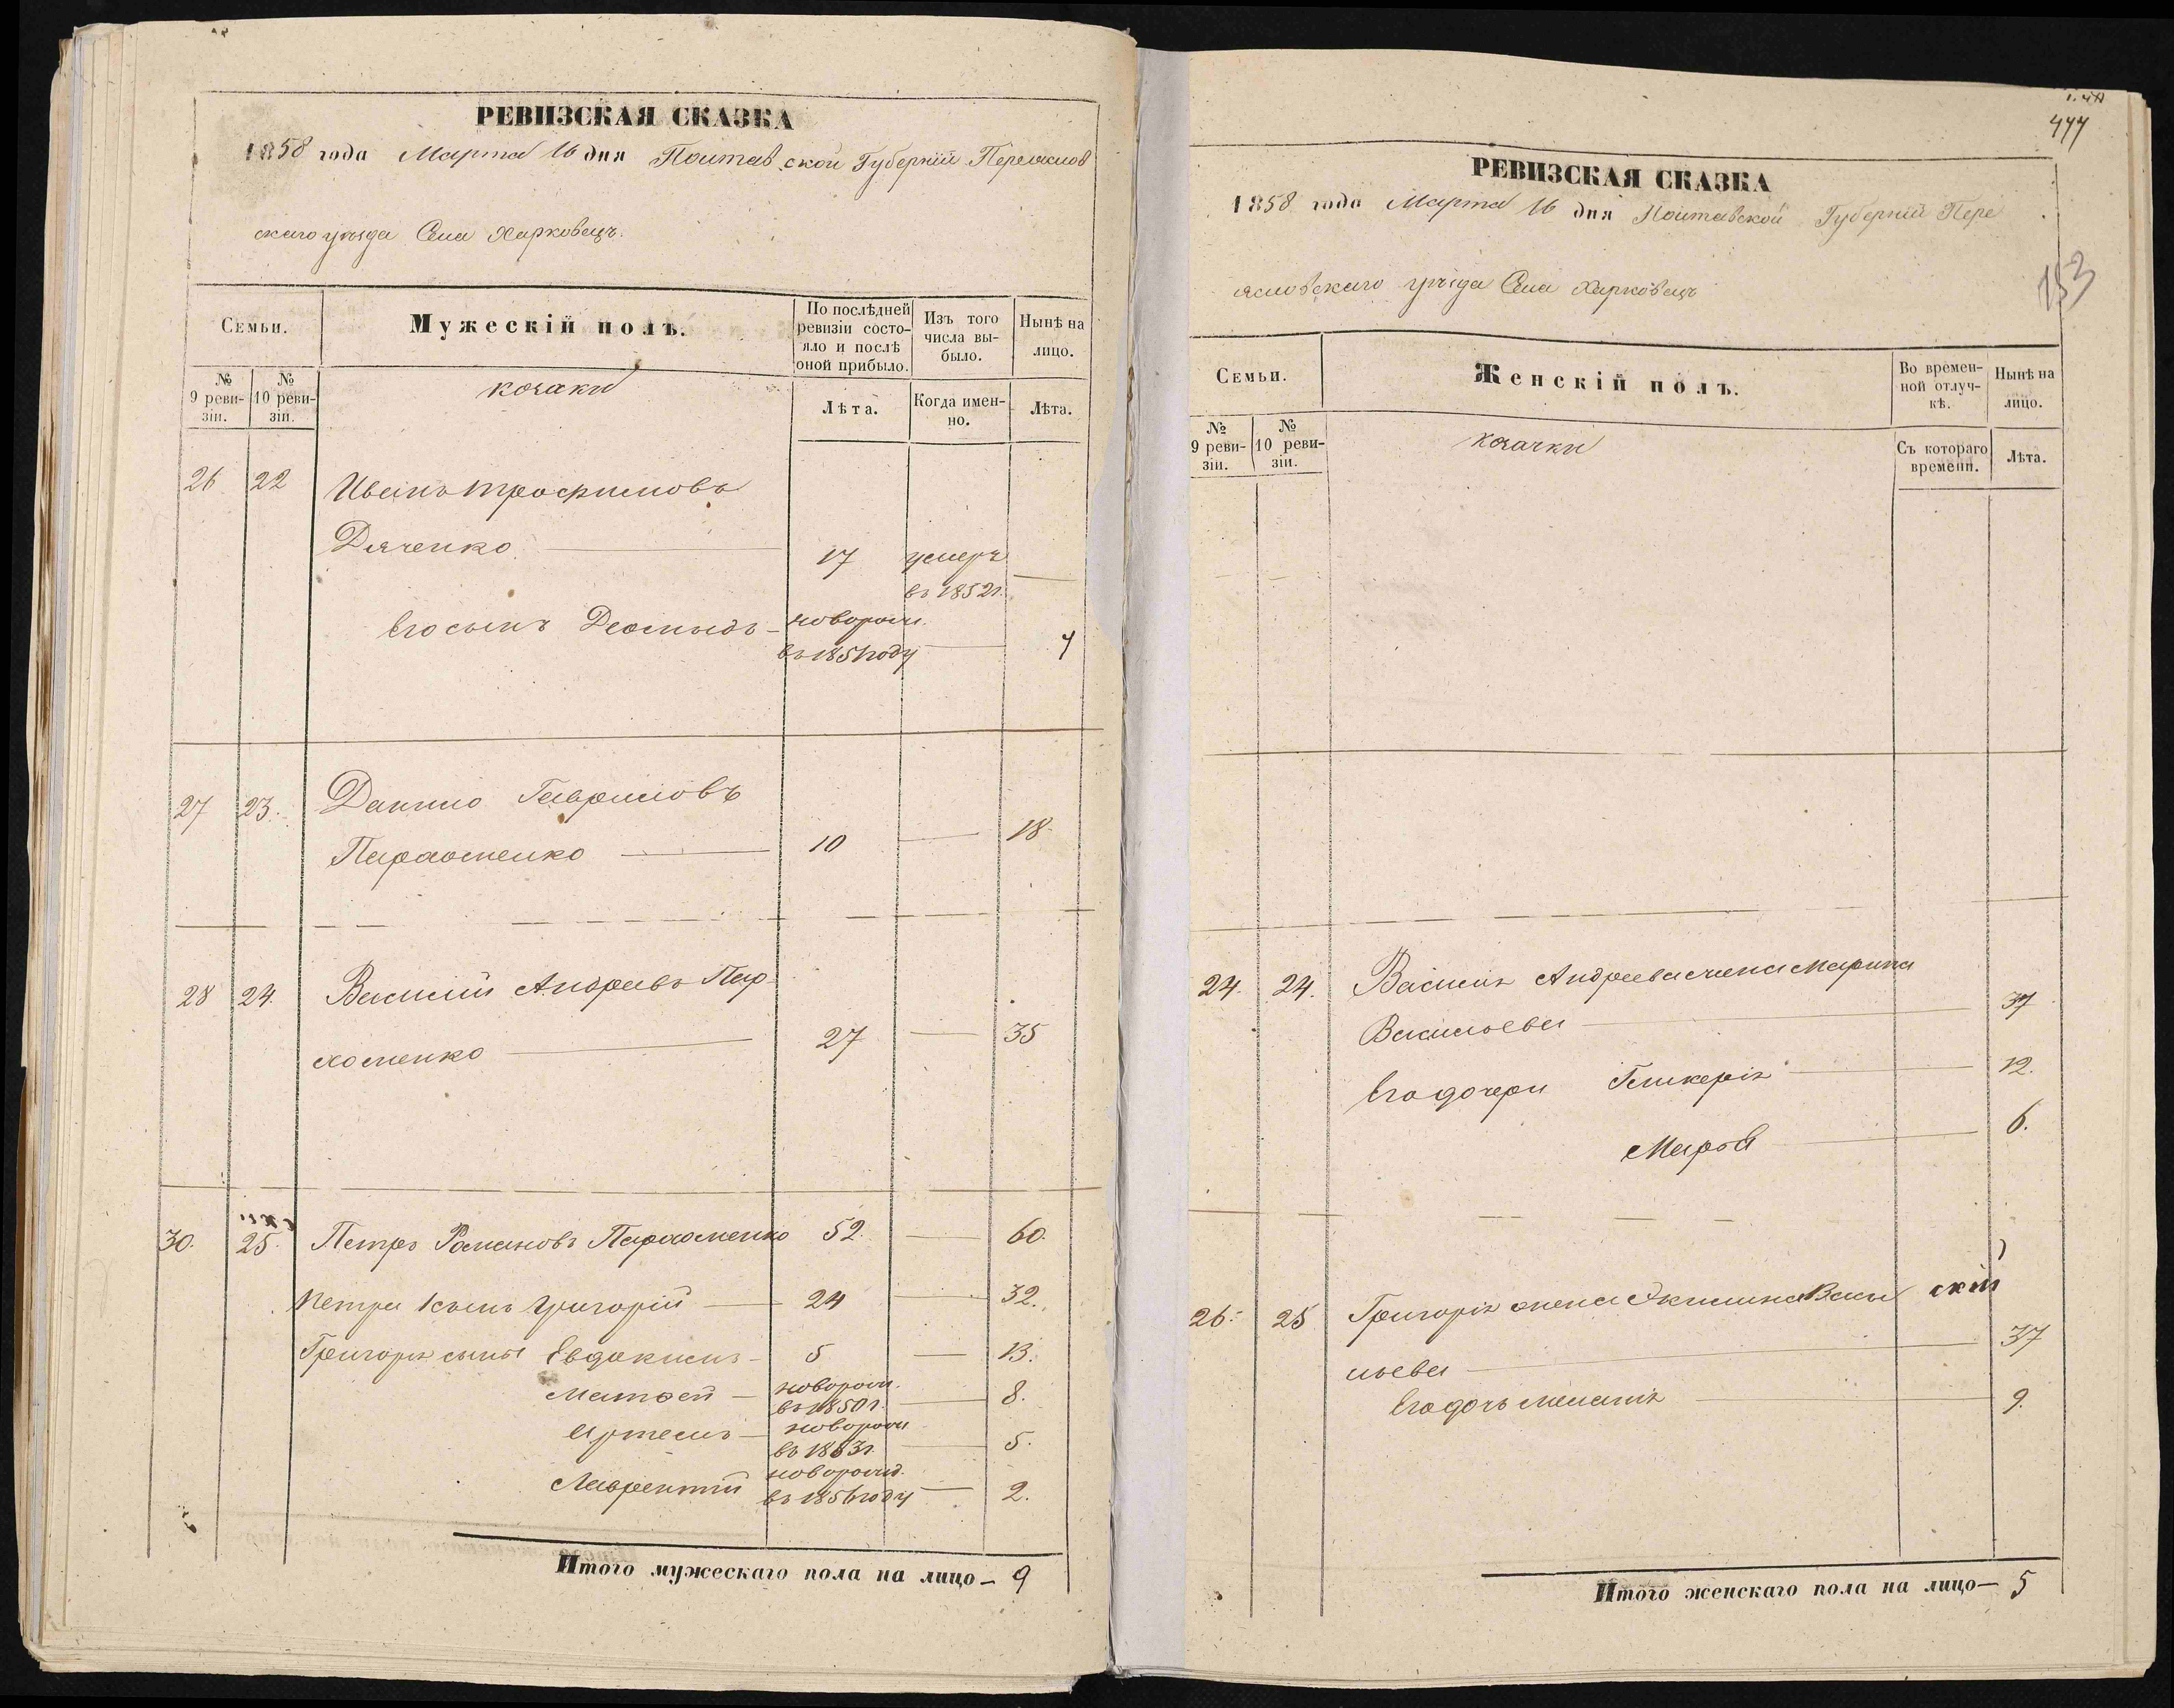 РЕВИЗСКАЯ СКАЗКА
1858 года Марта 16 дня Полтавской Губерніи Переяслов
скаго уѣзда Села Харковецъ.
Семьи.
Мужескій полъ.
По послѣдней ревизіи состояло и послѣ оной прибыло.
Изъ того числа выбыло.
Нынѣ на лицо.
№ 9 ревизіи.
№ 10 ревизіи.
козаки
Лѣта.
Когда именно.
Лѣта.
26 22 Иванъ Трофимовъ
Дяченко 17 умеръ
въ 1852г.
Его сынъ Деомидъ новорож.
въ 1851 году 7
27 23. Данило Гавриловъ
Пархоменко 10 18.
28 24. Василій Андреевъ Пар
хоменко 27 35
30. 25. Петръ Романовъ Пархоменко 52. 60.
Петра 1 сынъ Григорій 24 32.
Григорія сыны Евдокимъ 5 13.
Матвей новорож.
въ 1850г. 8.
Артемъ новорож
въ 1853г. 5.
Лаврентій новорожд.
въ 1856 году 2.
Итого мужескаго пола на лицо 9
477
РЕВИЗСКАЯ СКАЗКА
1858 года Марта 16 дня Полтавской Губерніи Пере
153
ясловскаго уѣзда Села Харковецъ
Семьи.
Женскій полъ.
Во временной отлучкѣ.
Нынѣ на лицо.
№ 9 ревизіи.
№ 10 ревизіи.
козачки
Съ котораго времени.
Лѣта.
24. 24. Василія Андреева жена Марина
Васильева 37
Его дочери Гликерія 12.
Марфа 6.
26. 25 Григорія жена Акилина Васи
льева 37
Его дочь Меланія 9.
Итого женскаго пола на лицо 5